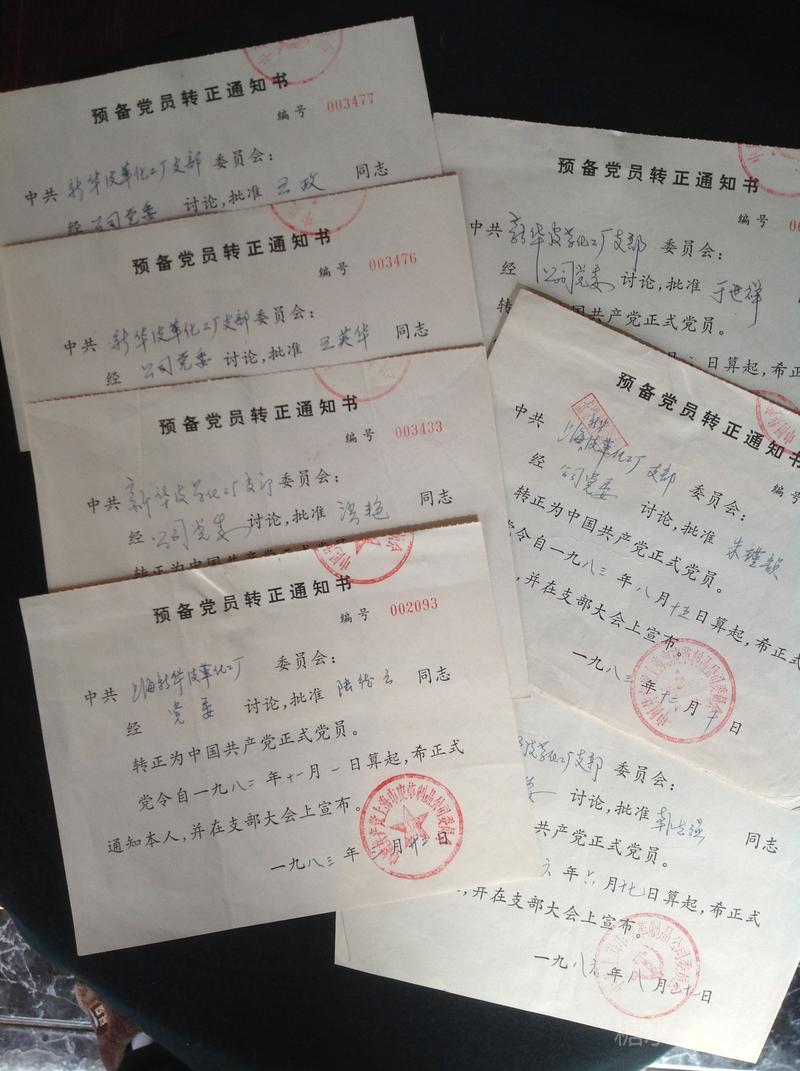 预备党员转正通知书
编号 003477
中共 新华皮革化工厂支部 委员会：
经 公司党委 讨论，批准 王政 同志
预备党员转正通知书
编号 003476
中共 新华皮革化工厂支部 委员会：
经 公司党委 讨论，批准 王英华 同志
预备党员转正通知书
编号 003433
中共 新华皮革化工厂支部 委员会：
经 公司党委 讨论，批准 洪艳 同志
转正为中国共产党正式党员
预备党员转正通知书
编号 002093
中共 上海新华皮革化工厂 委员会：
经 党委 讨论，批准 同志
转正为中国共产党正式党员。
党令自一九八二年十一月一日算起，希正式
通知本人，并在支部大会上宣布。
一九八三年 月十二日
中国共产党上海市皮革制品公司委员会
预备党员转正通知书
编号
中共 新华皮革化工厂支部 委员会：
经 公司党委 讨论，批准 于世祥
转 国共产党正式党员。
日算起，希正
预备党员转正通知书
中共 上海新华皮革化工厂支部 委员会：
经 公司党委 讨论，批准 朱 韵
转正为中国共产党正式党员。
党令自一九八三年八月十五日算起，希正式
，并在支部大会上宣布。
一九八三年十二月十日
皮革化工厂支部 委员会：
讨论，批准 韩志强 同志
共产党正式党员。
年六月十七日算起，希正式
，并在支部大会上宣布。
一九八六年八月二十一日